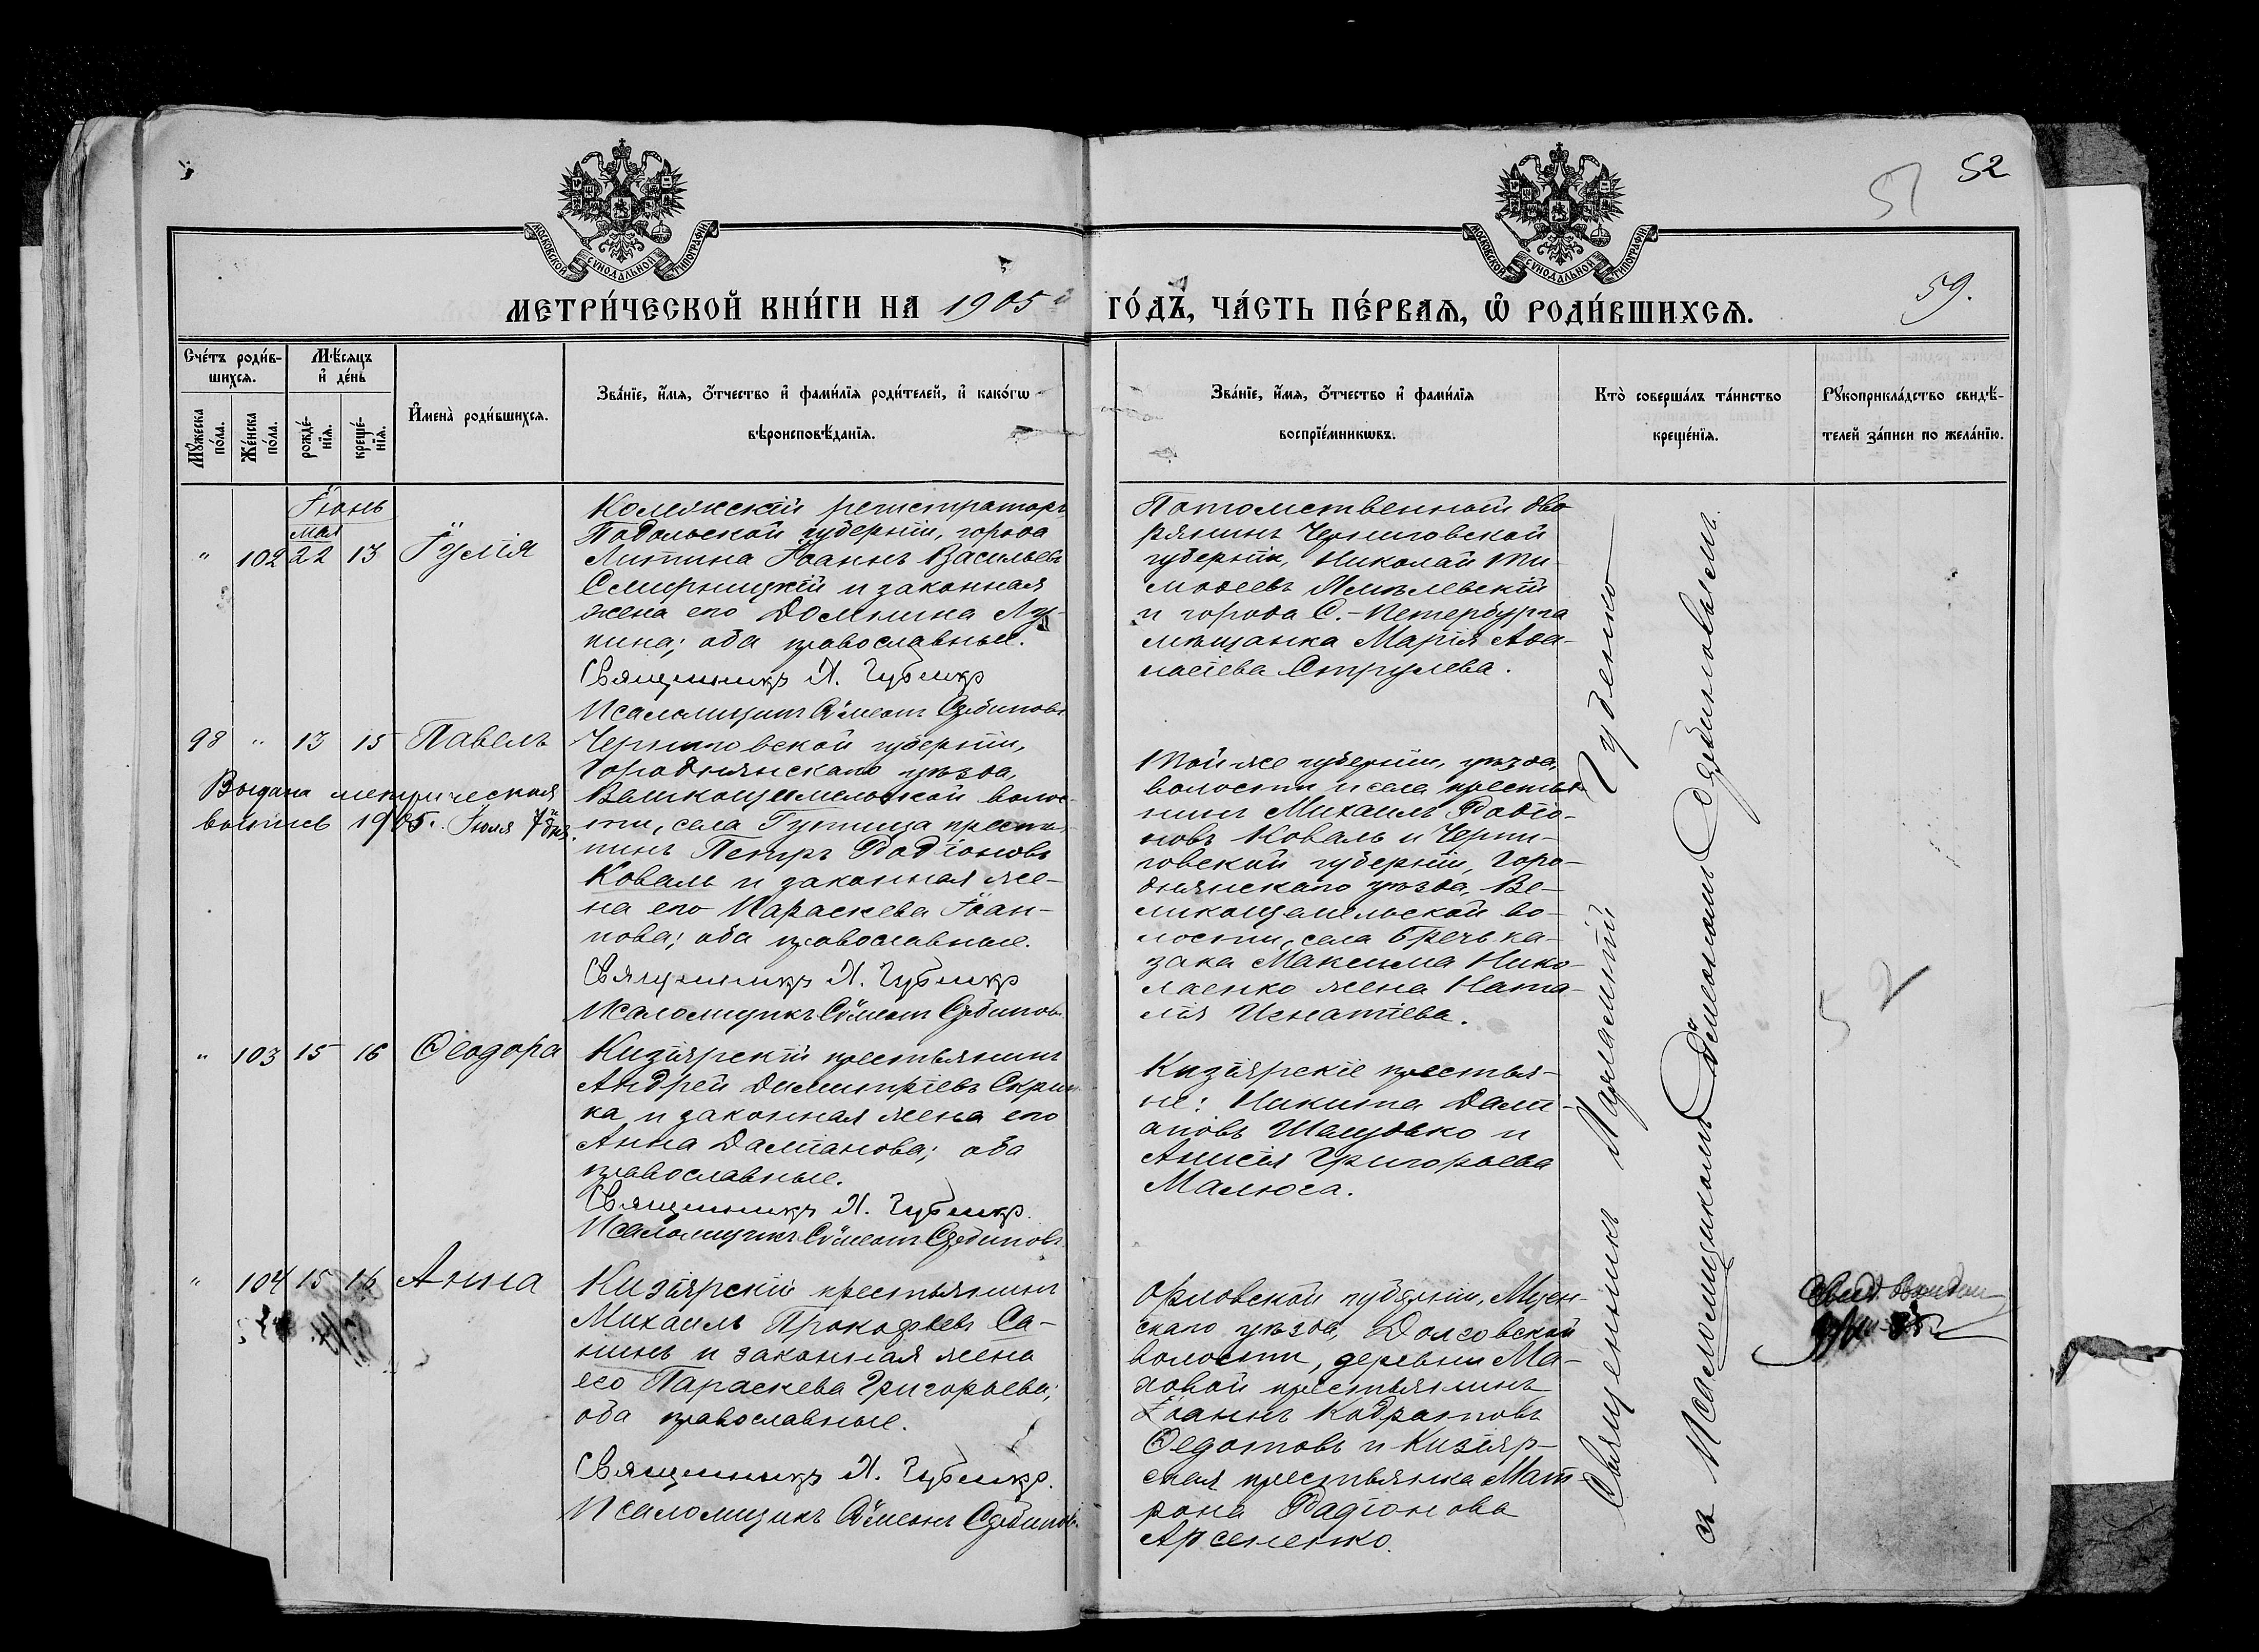 52
51
59.
МОСКОВСКОЙ СѴНОДАЛЬНОЙ ТИПОГРАФІИ
МОСКОВСКОЙ СѴНОДАЛЬНОЙ ТИПОГРАФІИ
МЕТРИ́ЧЕСКОЙ КНИ́ГИ НА 1905 ГО́ДЪ, ЧА́СТЬ ПЕ́РВАѦ, Ѡ҆ РОДИ́ВШИХСѦ.
Сче́тъ роди́в-
шихсѧ.
Мꙋ́жеска по́ла.
Же́нска по́ла.
Мѣ́сѧцъ и҆ де́нь
рожде́-нїѧ.
креще́-нїѧ.
И҆мена̀ роди́вшихсѧ.
Зва́нїе, и҆́мѧ, ѻ҆́тчество и҆ фами́лїѧ роди́телей, и҆ како́гѡ
вѣроисповѣ́данїѧ.
Зва́нїе, и҆́мѧ, ѻ҆́тчество и҆ фами́лїѧ
воспрїе́мникѡвъ.
Кто̀ соверша́лъ та́инство
креще́нїѧ.
Рꙋкоприкла́дство свидѣ́-
телей за́писи по жела́нїю.
Іюнь
мая
" 102 22 13 Іулія
Коллежскій регистраторъ
Подольской губерніи, города
Литина Іоаннъ Васильевъ
Смирницкій и законная
жена его Домнина Лу-
кина; оба православные.
Священникъ М. Губенко
Псаломщикъ Сѵмеонъ Сербиновъ
Потомственный дво
рянинъ Черниговской
губерніи, Николай Ти-
моѳеевъ Ямплевскій
и города С.-Петербурга
мѣщанка Марія Аѳа-
насіева Струлева.
98 " 13 15 Павелъ
Выдана метрическая
выпись 1905 г. Іюля 7 дня.
Черниговской губерніи,
Городнянскаго уѣзда,
Великощимельской волос-
ти, села Гутища крестья-
нинъ Петръ Родіоновъ
Коваль и законная же-
на его Параскева Іоан-
нова; оба православные.
Священникъ М. Губенко
Псаломщикъ Сѵмеонъ Сербиновъ
Той же губерніи, уѣзда,
волости и села крестья-
нинъ Михаилъ Родіо-
новъ Коваль и Черни-
говской губерніи, Горо-
днянскаго уѣзда, Ве-
ликощимельской во-
лости, села Бречь ка-
зака Максима Нико-
лаенко жена Ната-
лія Игнатіева.
" 103 15 16 Ѳеодора
Кизіярскій крестьянинъ
Андрей Димитріевъ Скрип-
ка и законная жена его
Анна Даміанова; оба
православные.
Священникъ М. Губенко.
Псаломщикъ Сѵмеонъ Сербиновъ
Кизіярскіе крестья-
не: Никита Дамі-
ановъ Шамудько и
Анисія Григорьева
Малюга.
" 104 15 16 Анна
Кизіярскій крестьянинъ
Михаилъ Прокофьевъ Са-
нинъ и законная жена
его Параскева Григорьева;
оба православные.
Священникъ М. Губенко.
Псаломщикъ Сѵмеонъ Сербиновъ
Орловской губерніи, Мцен-
скаго уѣзда, Долговской
волости, деревни Ма-
ховой крестьянинъ
Іоаннъ Кодратовъ
Ѳедотовъ и Кизіяр-
ская крестьянка Мат
рона Радіонова
Арсененко.
Священникъ Харлампій Губенко
съ Псаломщикомъ Сѵмеономъ Сербиновымъ.
52
Свид. выдан